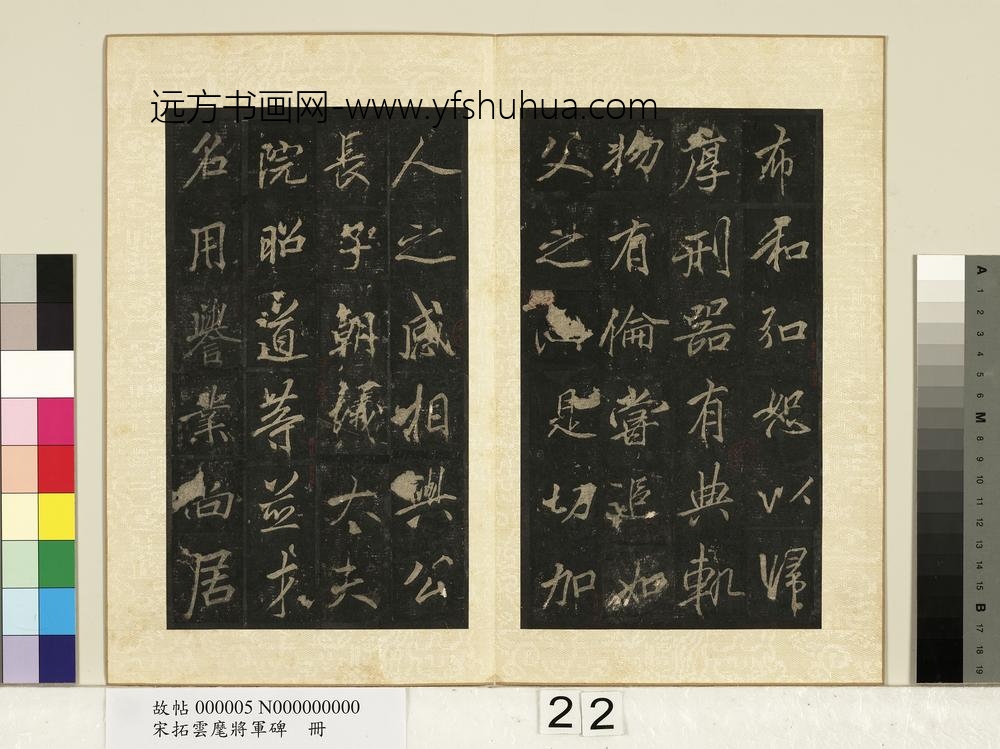 远方书画网-www.yfshuhua.com
布和知恕以歸
厚刑器有典軌
物有倫嘗追如
父之是切加
人之感相與公
長子朝議大夫
院昭道等並才
名用譽業尚居
故帖 000005 N000000000
宋拓雲麾將軍碑 冊
22
A 1 2 3 4 5 6 M 8 9 10 11 12 13 14 15 B 17 18 19